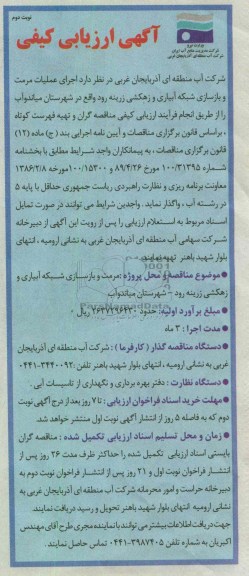 نوبت دوم
آگهی ارزیابی کیفی
شرکت آب منطقه ای آذربایجان غربی در نظر دارد اجرای عملیات مرمت
و بازسازی شبکه آبیاری و زهکشی زرینه رود واقع در شهرستان میاندوآب
را از طریق انجام فرآیند ارزیابی کیفی مناقصه گران و تهیه فهرست کوتاه
، براساس قانون برگزاری مناقصات و آیین نامه اجرایی بند (ج) ماده (۱۲)
قانون برگزاری مناقصات ، به پیمانکاران واجد شرایط مطابق با بخشنامه
شماره ۱۰۰/۳۱۳۹۵ مورخ ۸۹/۴/۲۶ و ۱۰۰/۱۵۳۰۰ مورخه ۱۳۸۶/۲/۸
معاونت برنامه ریزی و نظارت راهبردی ریاست جمهوری حداقل با پایه ۵
در رشته آب ، واگذار نماید. واجدین شرایط می توانند در صورت تمایل
اسناد مربوط به استعلام ارزیابی را پس از رویت این آگهی از دبیرخانه
شرکت سهامی آب منطقه ای آذربایجان غربی به نشانی ارومیه ، انتهای
بلوار شهید باهنر تهیه نمایند.
● موضوع مناقصه و محل پروژه : مرمت و بازسازی شبکه آبیاری و
زهکشی زرینه رود - شهرستان میاندوآب
● مبلغ برآورد اولیه: حدود ۷۶۳۷۱۹۶۴۳۰ ریال
● مدت اجرا : ۳ ماه
● دستگاه مناقصه گذار ( کارفرما ) : شرکت آب منطقه ای آذربایجان
غربی به نشانی ارومیه ، انتهای بلوار شهید باهنر تلفن: ۳۴۴۰۰۹۲-۰۴۴۱
● دستگاه نظارت : دفتر بهره برداری و نگهداری از تاسیسات آبی .
● مهلت خرید اسناد فراخوان ارزیابی : تا ۷ روز بعد از درج آگهی نوبت
دوم که به فاصله ۵ روز از انتشار آگهی نوبت اول منتشر خواهد شد.
● زمان و محل تسلیم اسناد ارزیابی تکمیل شده : مناقصه گران
بایستی اسناد ارزیابی تکمیل شده را حداکثر ظرف مدت ۲۶ روز پس از
انتشار فراخوان نوبت اول و ۲۱ روز پس از انتشار فراخوان نوبت دوم به
دبیرخانه حراست و امور محرمانه شرکت آب منطقه ای آذربایجان غربی به
نشانی ارومیه انتهای بلوار شهید باهنر تحویل و رسید دریافت نمایند.
جهت دریافت اطلاعات بیشتر می توانند با نماینده مجری طرح آقای مهندس
اکبریان به شماره تلفن ۳۹۸۷۴۰۵-۰۴۴۱ تماس حاصل نمایند.